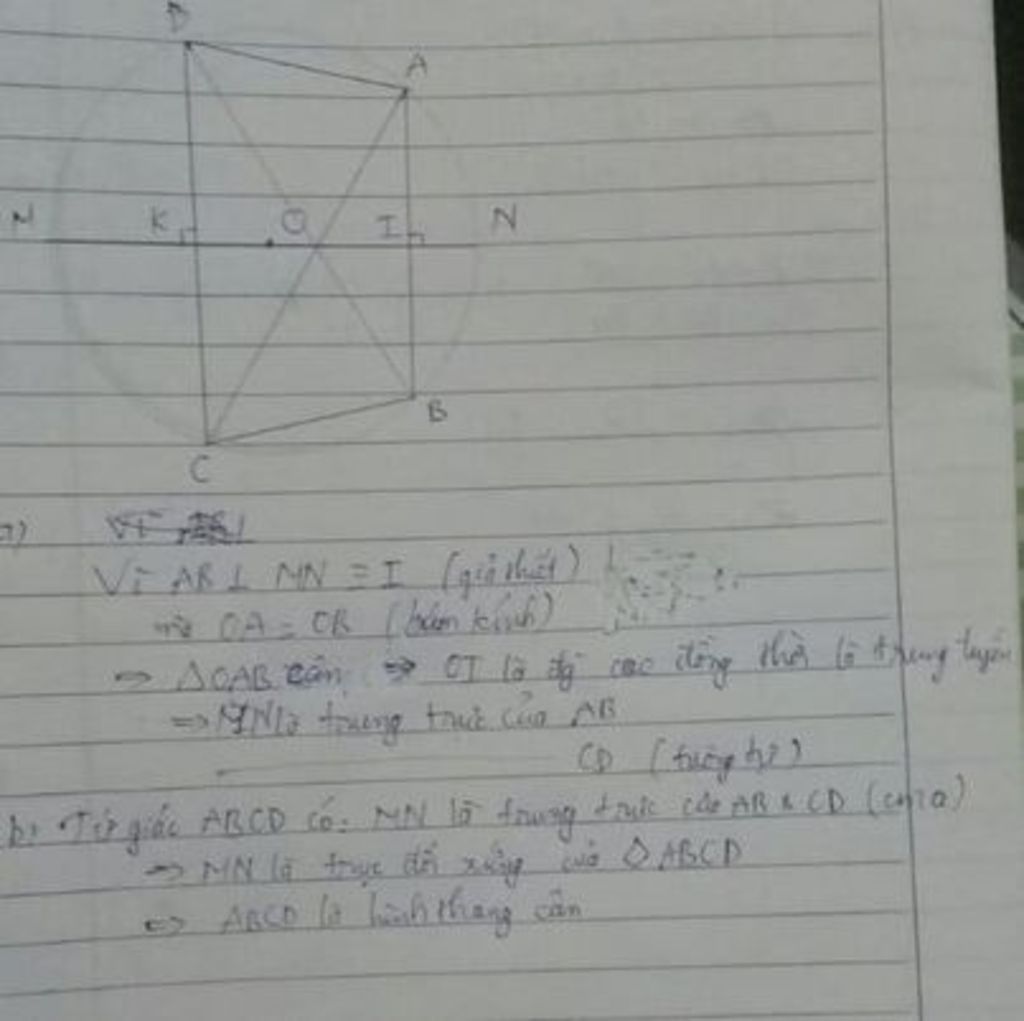 D
A
M K O I N
B
C
a)
Vì AB ⊥ MN ≡ I (giả thiết)
mà OA = OB (bán kính)
=> △OAB cân => OI là đg cao đồng thời là trung tuyến
=> MN là trung trực của AB
CD (tương tự)
b, Tứ giác ABCD có: MN là trung trực của AB & CD (câu a)
=> MN là trục đối xứng của ABCD
<=> ABCD là hình thang cân